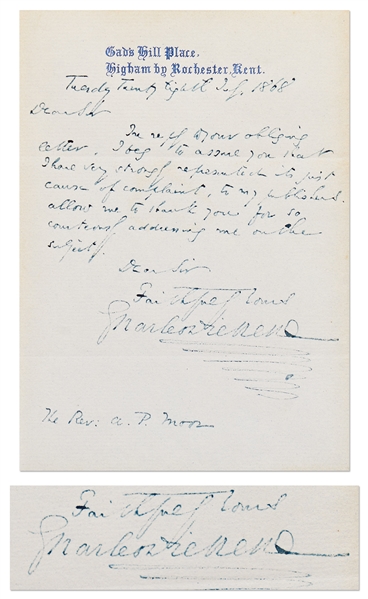 Gad's Hill Place,
Higham by Rochester, Kent.
Tuesday Twenty Eighth July, 1868
Dear Sir
In reply to your obliging
letter, I beg to assure you that
I have very strongly represented its just
cause of complaint, to my publishers.
allow me to thank you for so
courteously addressing me on the
subject.
Dear Sir
Faithfully Yours
Charles Dickens
The Rev: A. P. Moor
Faithfully Yours
Charles Dickens